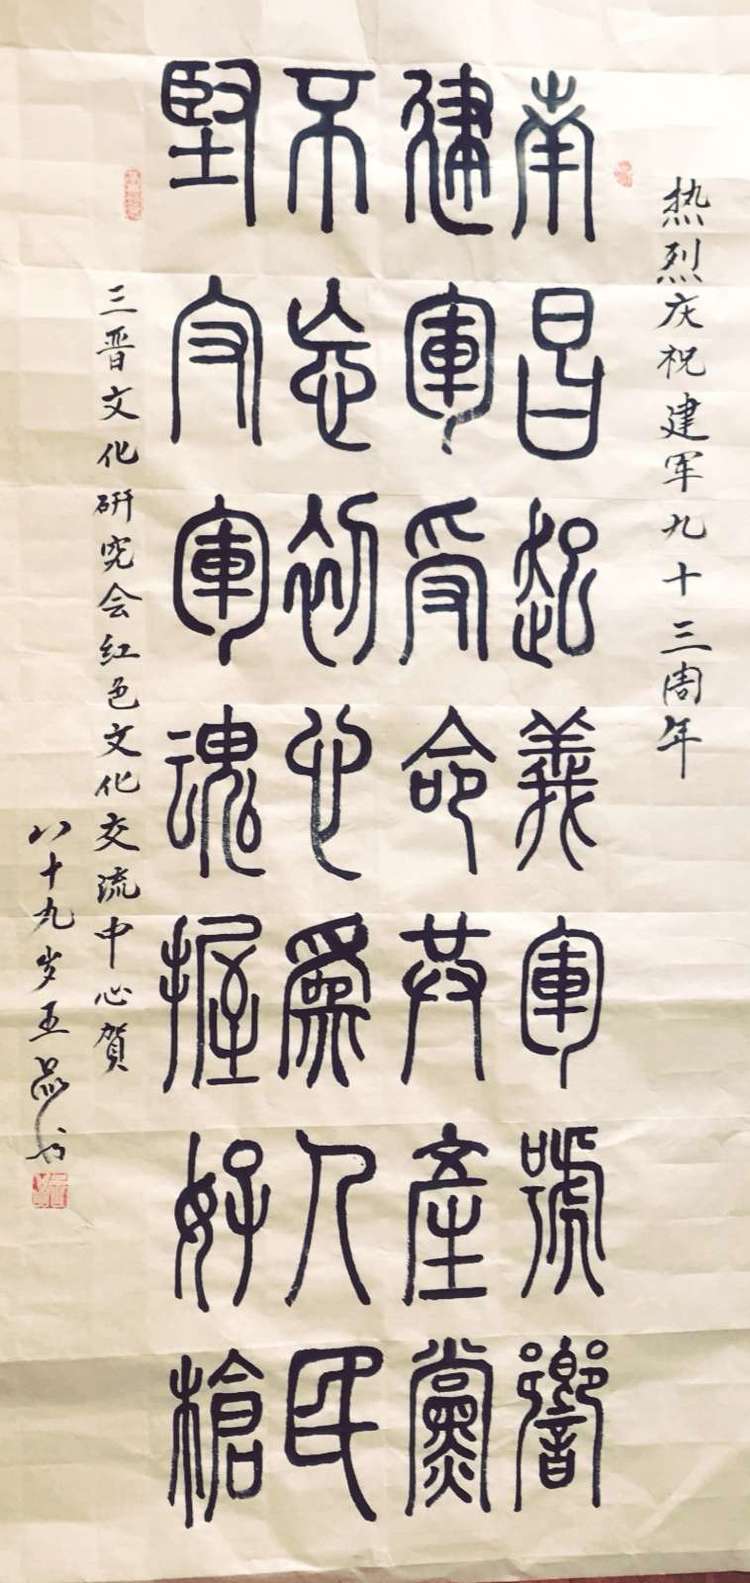 热烈庆祝建军九十三周年
南昌起義軍號響
建軍受命共產黨
不忘初心為人民
堅守軍魂握好槍
三晋文化研究会红色文化交流中心贺
八十九岁王品书